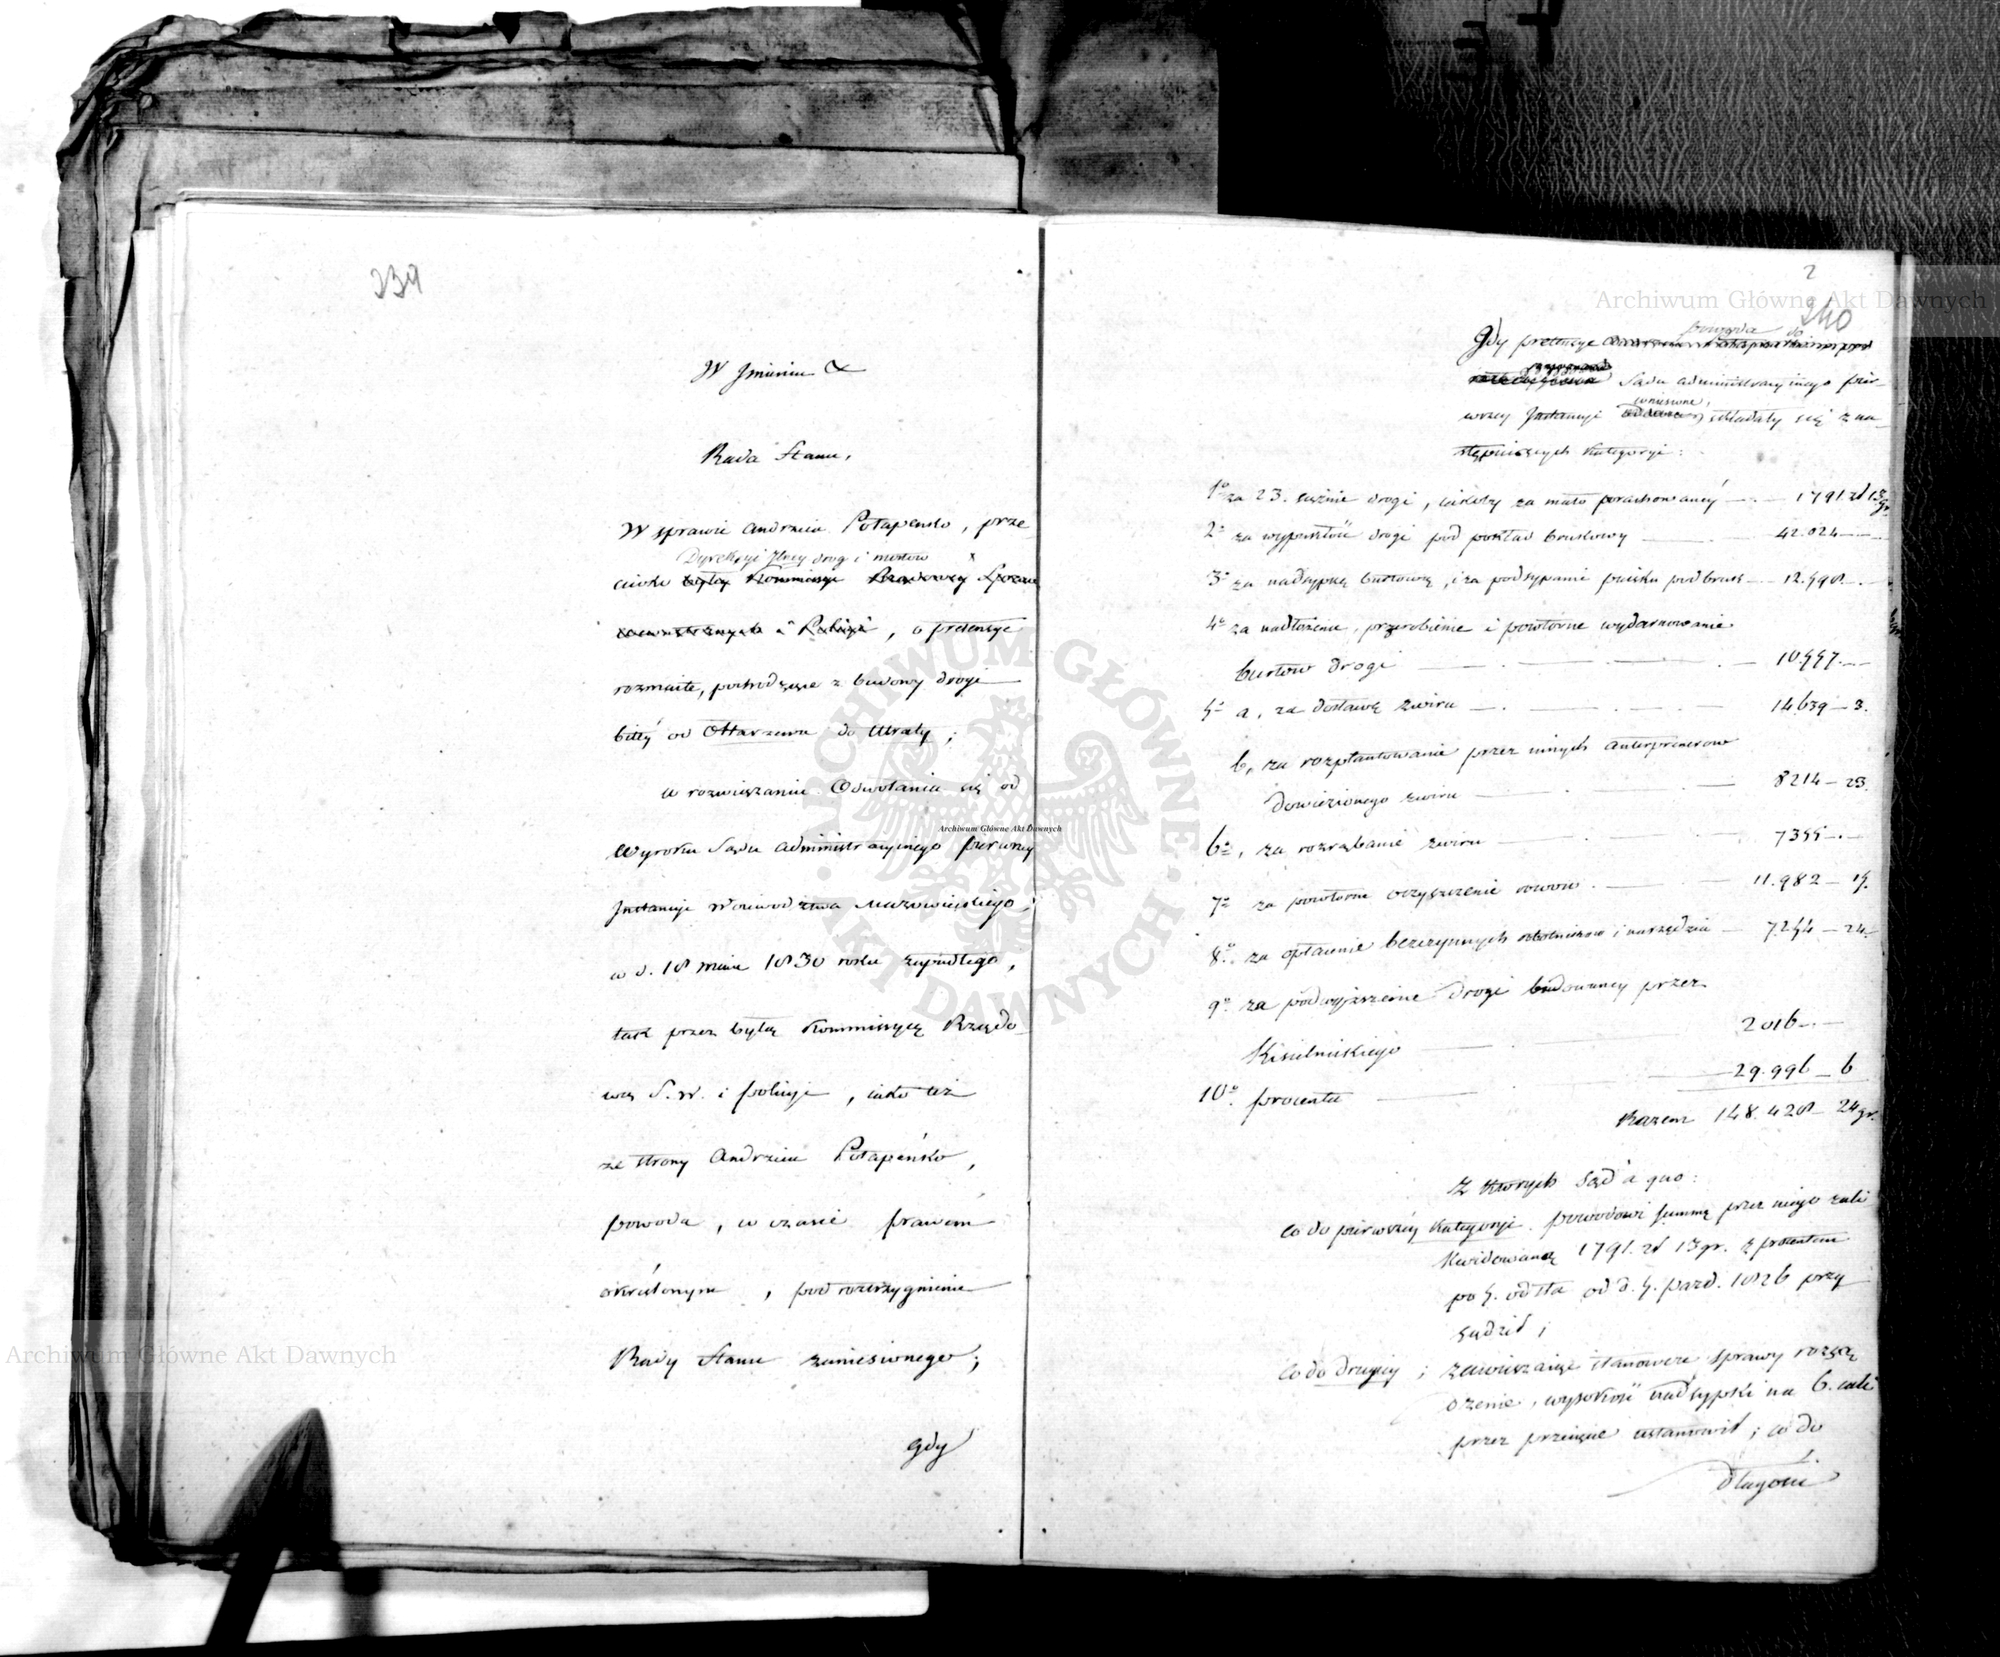 239
W Imieniu &
Rada Stanu,
W sprawie Andrzeia Potapeńko, prze
Dyrekcyi Jlney drog i mostów
ciwko byłey Kommissyi Rządowey Spraw
wewnętrznych i Policyi, o pretensye
rozmaite, pochodzące z budowy drogi
bitéy od Ołtarzewa do Utraty;
w rozwiązaniu Odwołania się od
Wyroku Sądu Administracyinego pierwszey
Instancyi Woiewodztwa Mazowieckiego,
w d. 18 maia 1830 roku zapadłego,
tak przez byłą Kommissyą Rządo-
wą S. W. i policyi, iako też
ze strony Andrzeia Potapeńko,
powoda, w czasie prawem
określonym, pod rozstrzygnienie
Rady Stanu zaniesionego;
Gdy
2
240
powoda do
Gdy pretensye
Sądu administracyinego pier-
wniesione,
wszey Instancyi składały się z na-
stępuiących kategoryi:
1o za 23. sążnie drogi, iakoby za mało porachowanéy — 1791. zł 13 gr.
2o za wypukłość drogi pod pokład brukowy — 42.024 —
3o za nadsypkę burtową, i za podsypanie piasku pod bruk — 12.598. —
4o za nadłożenie, przerobienie i powtórne wydarnowanie
burtow drogi — 10.557. —
5o a, za dostawę żwiru — 14639 — 3.
b, za rozplantowanie przez innych anterprenerow
dowiezionego żwiru — 8214 — 23.
6o, za rozrąbanie żwiru — 7355 — . —
7o za powtórne oczyszczenie rowow — 11.982 — 15.
8o. za opłacenie bezczynnych robotnikow i narzędzia — 7254 — 24.
9o za podwyższenie drogi budowaney przez
Kisielnickiego — 2016 — . —
10o. procenta — 29.996 — 6
Razem 148.428 — 24 gr.
Z ktorych Sąd a quo:
co do pierwszéy kategoryi. powodowi summę przez niego zali
kwidowaną 1791. zł 13 gr. z procentem
po 5. od sta od d. 5. pazd. 1826 przy
sądził;
co do drugiéy; zawieszaiąc stanowcze sprawy rozsą
dzenie, wysokość nadsypki na 6. cali
przez przecięcie ustanowił; co do
długości
Archiwum Główne Akt Dawnych
Archiwum Główne Akt Dawnych
Archiwum Główne Akt Dawnych
ARCHIWUM GŁÓWNE AKT DAWNYCH